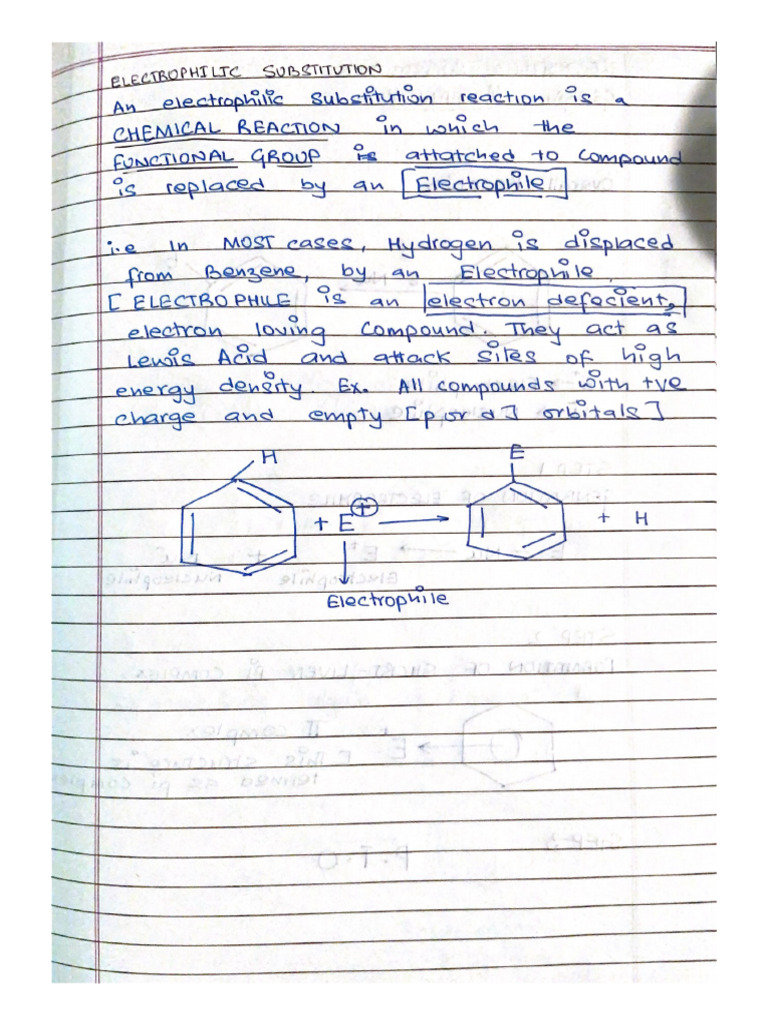 ELECTROPHILIC SUBSTITUTION
An electrophilic substitution reaction is a
CHEMICAL REACTION in which the
FUNCTIONAL GROUP is attatched to compound
is replaced by an Electrophile
i.e In MOST cases, Hydrogen is displaced
from Benzene, by an Electrophile.
[ ELECTROPHILE is an electron defecient,
electron loving compound. They act as
Lewis Acid and attack sites of high
energy density. Ex. All compounds with +ve
charge and empty [p or d] orbitals]
H E
+ E + → + H
Electrophile